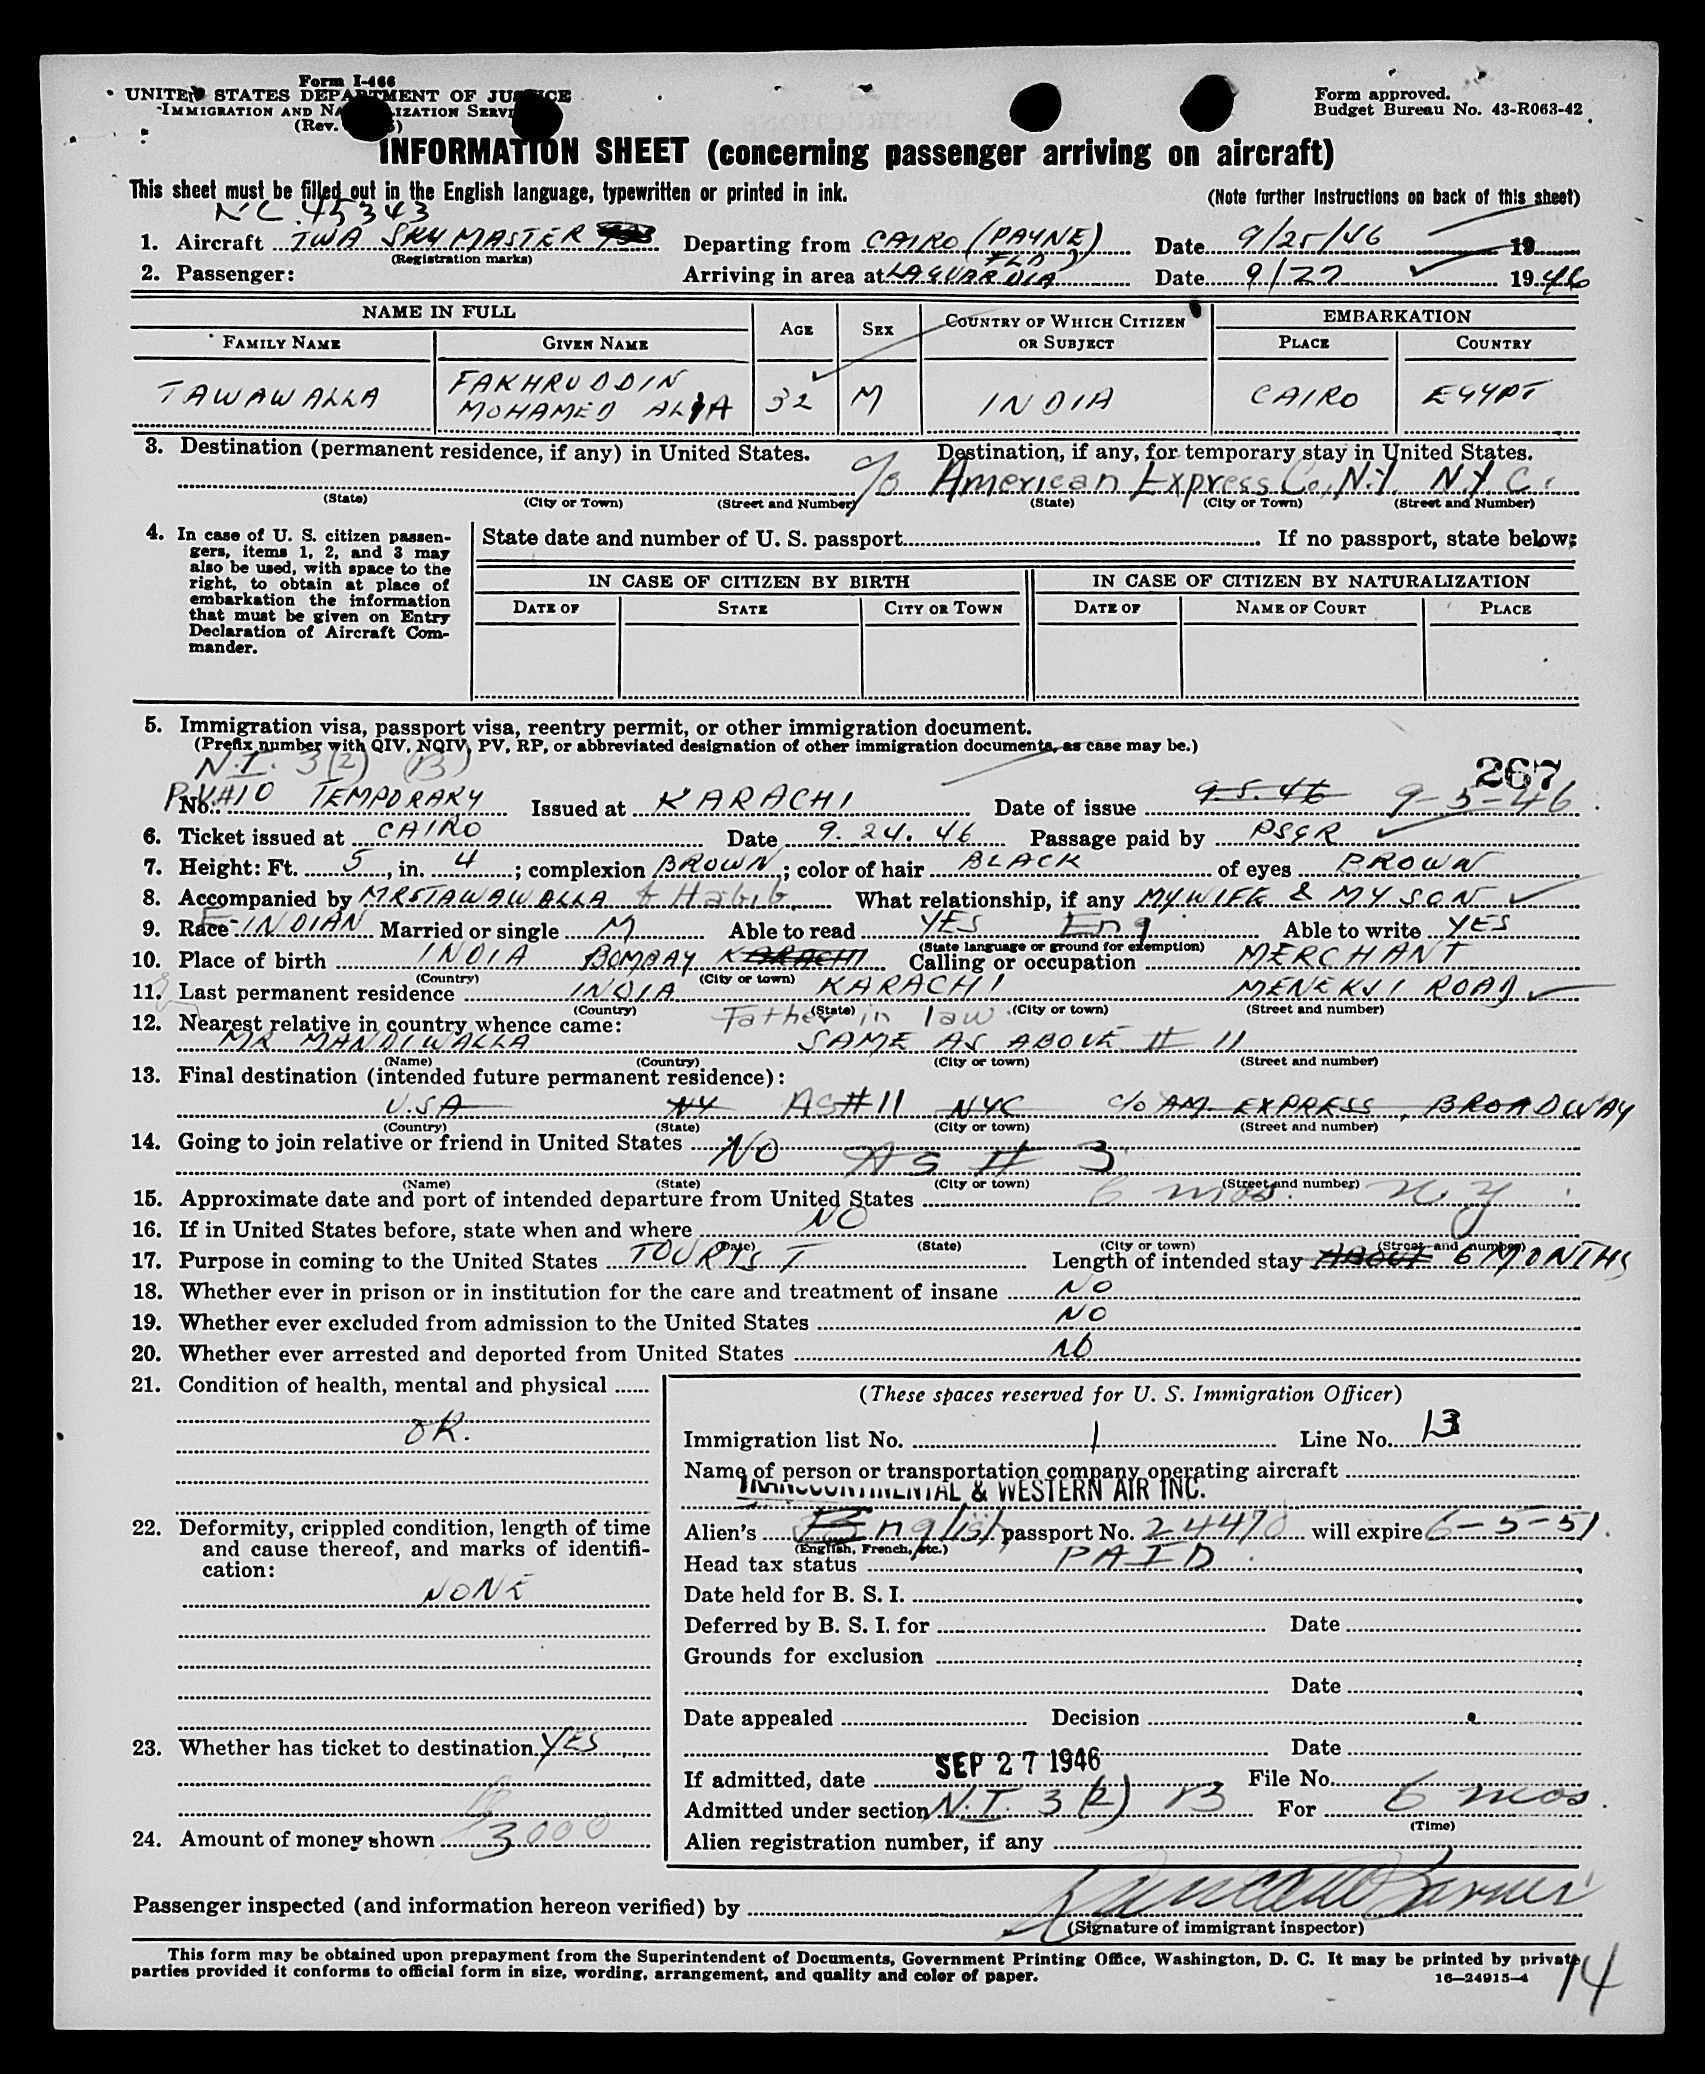 Form I-466
UNITED STATES DEPARTMENT OF JUSTICE
IMMIGRATION AND NATURALIZATION SERVICE
(Rev.
Form approved.
Budget Bureau No. 43-R063-42
INFORMATION SHEET (concerning passenger arriving on aircraft)
This sheet must be filled out in the English language, typewritten or printed in ink.
(Note further instructions on back of this sheet)
NC. 45343
1. Aircraft TWA SKYMASTER Departing from CAIRO (PAYNE FLD) Date 9/25/46 19
(Registration marks)
2. Passenger: Arriving in area at LAGUARDIA Date 9/27 1946
NAME IN FULL AGE SEX COUNTRY OF WHICH CITIZEN OR SUBJECT EMBARKATION
FAMILY NAME GIVEN NAME PLACE COUNTRY
TAWAWALLA FAKHRUDDIN MOHAMED ALIA 32 M INDIA CAIRO EGYPT
3. Destination (permanent residence, if any) in United States. Destination, if any, for temporary stay in United States.
c/o American Express Co., N.Y. N.Y.C.
(State) (City or Town) (Street and Number) (State) (City or Town) (Street and Number)
4. In case of U. S. citizen passen-
gers, items 1, 2, and 3 may
also be used, with space to the
right, to obtain at place of
embarkation the information
that must be given on Entry
Declaration of Aircraft Com-
mander.
State date and number of U. S. passport If no passport, state below:
IN CASE OF CITIZEN BY BIRTH IN CASE OF CITIZEN BY NATURALIZATION
DATE OF STATE CITY OR TOWN DATE OF NAME OF COURT PLACE
5. Immigration visa, passport visa, reentry permit, or other immigration document.
(Prefix number with QIV, NQIV, PV, RP, or abbreviated designation of other immigration documents, as case may be.)
N.I. 3(2) (B)
267
No. TEMPORARY Issued at KARACHI Date of issue 9.5.46 9-5-46
6. Ticket issued at CAIRO Date 9.24.46 Passage paid by PSGR
7. Height: Ft. 5, in. 4; complexion BROWN; color of hair BLACK of eyes BROWN
8. Accompanied by MRS TAWAWALLA & Habib What relationship, if any MY WIFE & MY SON
9. Race E-INDIAN Married or single M Able to read YES Eng Able to write YES
(State language or ground for exemption)
10. Place of birth INDIA BOMBAY KARACHI Calling or occupation MERCHANT
(Country) (City or town)
11. Last permanent residence INDIA KARACHI MENEKJI ROAD
(Country) (State) (City or town) (Street and number)
12. Nearest relative in country whence came: Father in law
MR MANDIWALLA SAME AS ABOVE # 11
(Name) (Country) (City or town) (Street and number)
13. Final destination (intended future permanent residence):
U.S.A NY AS # 11 NYC c/o AM. EXPRESS, BROADWAY
(Country) (State) (City or town) (Street and number)
14. Going to join relative or friend in United States NO
AS # 3
(Name) (State) (City or town) (Street and number)
15. Approximate date and port of intended departure from United States 6 mos. N.Y
16. If in United States before, state when and where NO
(Date) (State) (City or town) (Street and number)
17. Purpose in coming to the United States TOURIST Length of intended stay ABOUT 6 MONTHS
18. Whether ever in prison or in institution for the care and treatment of insane NO
19. Whether ever excluded from admission to the United States NO
20. Whether ever arrested and deported from United States NO
21. Condition of health, mental and physical
OK.
22. Deformity, crippled condition, length of time
and cause thereof, and marks of identifi-
cation:
NONE
23. Whether has ticket to destination YES
24. Amount of money shown 3000
(These spaces reserved for U. S. Immigration Officer)
Immigration list No. 1 Line No. 13
Name of person or transportation company operating aircraft
TRANSCONTINENTAL & WESTERN AIR INC.
Alien's English passport No. 24470 will expire 6-5-51.
(English, French, etc.)
Head tax status PAID
Date held for B. S. I.
Deferred by B. S. I. for Date
Grounds for exclusion
Date
Date appealed Decision
Date
If admitted, date SEP 27 1946 File No.
Admitted under section N.I. 3(2) B For 6 mos.
(Time)
Alien registration number, if any
Passenger inspected (and information hereon verified) by
(Signature of immigrant inspector)
This form may be obtained upon prepayment from the Superintendent of Documents, Government Printing Office, Washington, D. C. It may be printed by private
parties provided it conforms to official form in size, wording, arrangement, and quality and color of paper.
16—24915-4
14